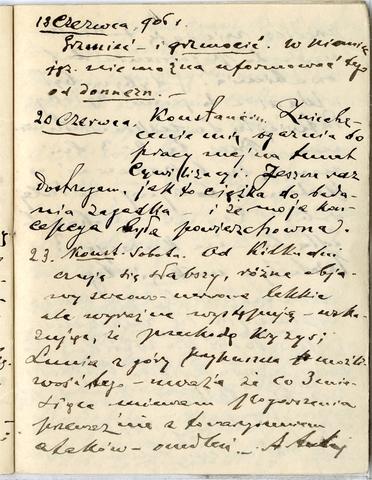 18 Czerwca, 906 r.
Grzmieć – i grzmocić. w niemiec
jęz. niemożna uformować tego
od donnern. –
20 Czerwca. Konstancin. Zniechę
cenie mię ogarnia do
pracy mej na temat
Cywilizacyi. Jeszcze raz
dostrzegam, jak to ciężka do bada
nia zagadka – i że moja kon
cepcya była powierzchowna?
23. Konst. Sobota. Od kilku dni
czuję się słabszy, różne obja
wy sercowo-nerwowe lekkie
ale wyraźnie występują – wska
zując, że przechodzę kryzys;
Lunia z góry przypuszcza możli
wość tego – uważa że co 3 mie
siące miewam pogorszenia
przeważnie z towarzyszeniem
ataków – omdleń. –